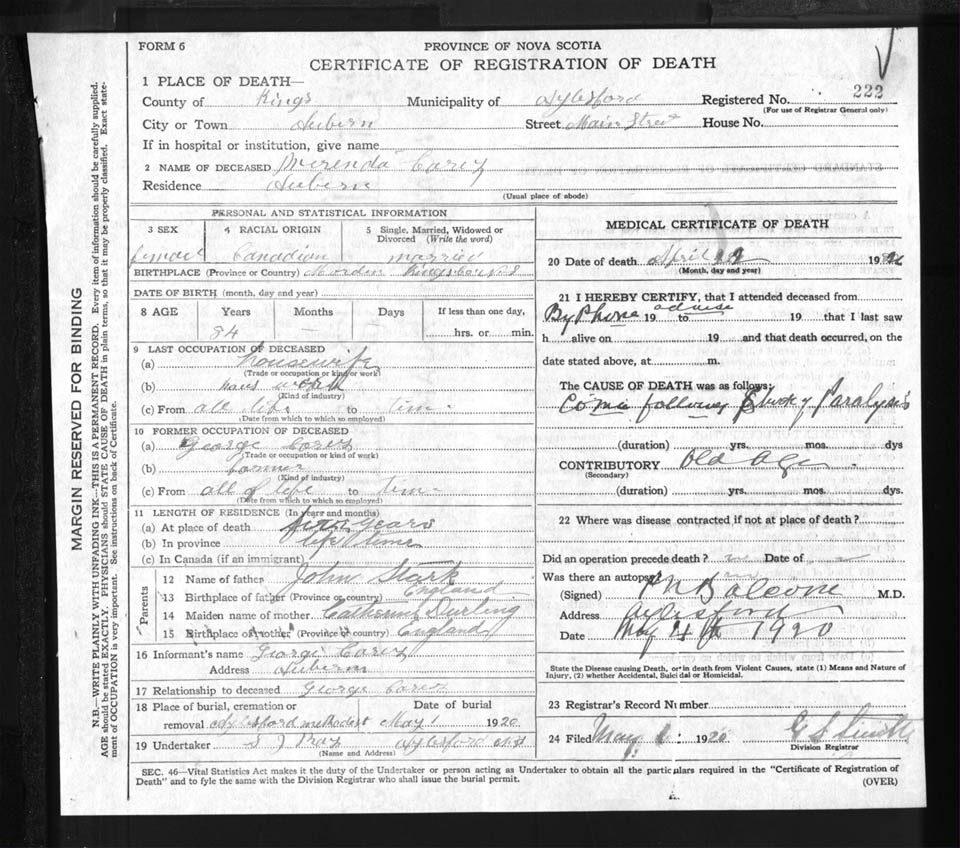 FORM 6
PROVINCE OF NOVA SCOTIA
CERTIFICATE OF REGISTRATION OF DEATH
1 PLACE OF DEATH—
County of Kings Municipality of Aylesford Registered No. 222
(For use of Registrar General only)
City or Town Auburn Street Main Street House No.
If in hospital or institution, give name
2 NAME OF DECEASED Merenda Carey
Residence Auburn
(Usual place of abode)
PERSONAL AND STATISTICAL INFORMATION
3 SEX 4 RACIAL ORIGIN 5 Single, Married, Widowed or Divorced (Write the word)
female Canadian married
BIRTHPLACE (Province or Country) Kings
DATE OF BIRTH (month, day and year)
8 AGE Years Months Days If less than one day,
84 hrs. or min.
9 LAST OCCUPATION OF DECEASED
(a) housewife
(Trade or occupation or kind of work)
(b) hous work
(Kind of industry)
(c) From all life to time
(Date from which to which so employed)
10 FORMER OCCUPATION OF DECEASED
(a) George Carey
(Trade or occupation or kind of work)
(b)
(Kind of industry)
(c) From all of life to time
(Date from which to which so employed)
11 LENGTH OF RESIDENCE (In years and months)
(a) At place of death years
(b) In province life time
(c) In Canada (if an immigrant)
Parents
12 Name of father John Stark
13 Birthplace of father (Province or country) England
14 Maiden name of mother Catherine Durling
15 Birthplace of mother (Province or country) England
16 Informant's name George Carey
Address Auburn
17 Relationship to deceased George Carey
18 Place of burial, cremation or removal Date of burial
Aylesford methodist May 1 1920
19 Undertaker Aylesford N S
(Name and Address)
MEDICAL CERTIFICATE OF DEATH
20 Date of death April 19
(Month, day and year)
21 I HEREBY CERTIFY, that I attended deceased from
By Phone 19 to advise 19 that I last saw
h alive on 19 and that death occurred, on the
date stated above, at m.
The CAUSE OF DEATH was as follows:
Coma following Paralysis
(duration) yrs. mos. dys
CONTRIBUTORY Old Age
(Secondary)
(duration) yrs. mos. dys.
22 Where was disease contracted if not at place of death?
Did an operation precede death? no Date of
Was there an autopsy
(Signed) Balcom M.D.
Address Aylesford
Date May 4th 1920
State the Disease causing Death, or in death from Violent Causes, state (1) Means and Nature of Injury, (2) whether Accidental, Suicidal or Homicidal.
23 Registrar's Record Number
24 Filed May 1920 Smith
Division Registrar
SEC. 46—Vital Statistics Act makes it the duty of the Undertaker or person acting as Undertaker to obtain all the particulars required in the "Certificate of Registration of
Death" and to fyle the same with the Division Registrar who shall issue the burial permit. (OVER)
MARGIN RESERVED FOR BINDING
N.B.—WRITE PLAINLY WITH UNFADING INK—THIS IS A PERMANENT RECORD. Every item of information should be carefully supplied.
AGE should be stated EXACTLY. PHYSICIANS should STATE CAUSE OF DEATH in plain terms, so that it may be properly classified. Exact state-
ment of OCCUPATION is very important. See instructions on back of Certificate.